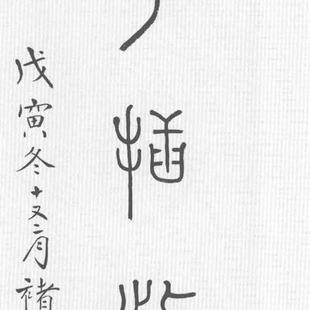 插
戊寅冬十又二月褚